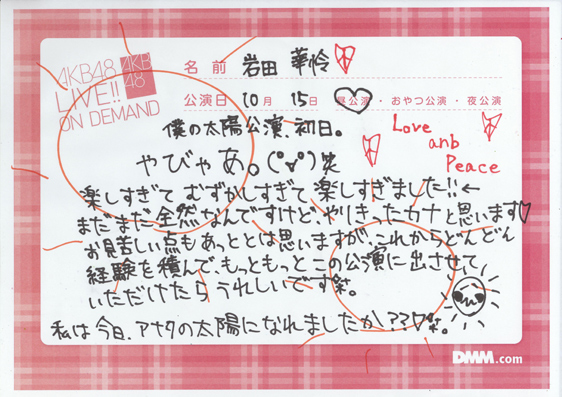 AKB48
LIVE!!
ON DEMAND
AKB
48
名前 岩田 華怜
公演日 10月 15日 昼公演・おやつ公演・夜公演
僕の太陽公演、初日。
やびゃあ。(°∀°)笑
Love
anb
Peace
楽しすぎて むずかしすぎて 楽しすぎました!!←
まだまだ全然なんですけど、やりきったカナと思います♡
お見苦しい点もあったとは思いますが、これからどんどん
経験を積んで、もっともっとこの公演に出させて
いただけたら うれしいです笑。
私は今日、アナタの太陽になれましたか??マ♡笑。
DMM.com